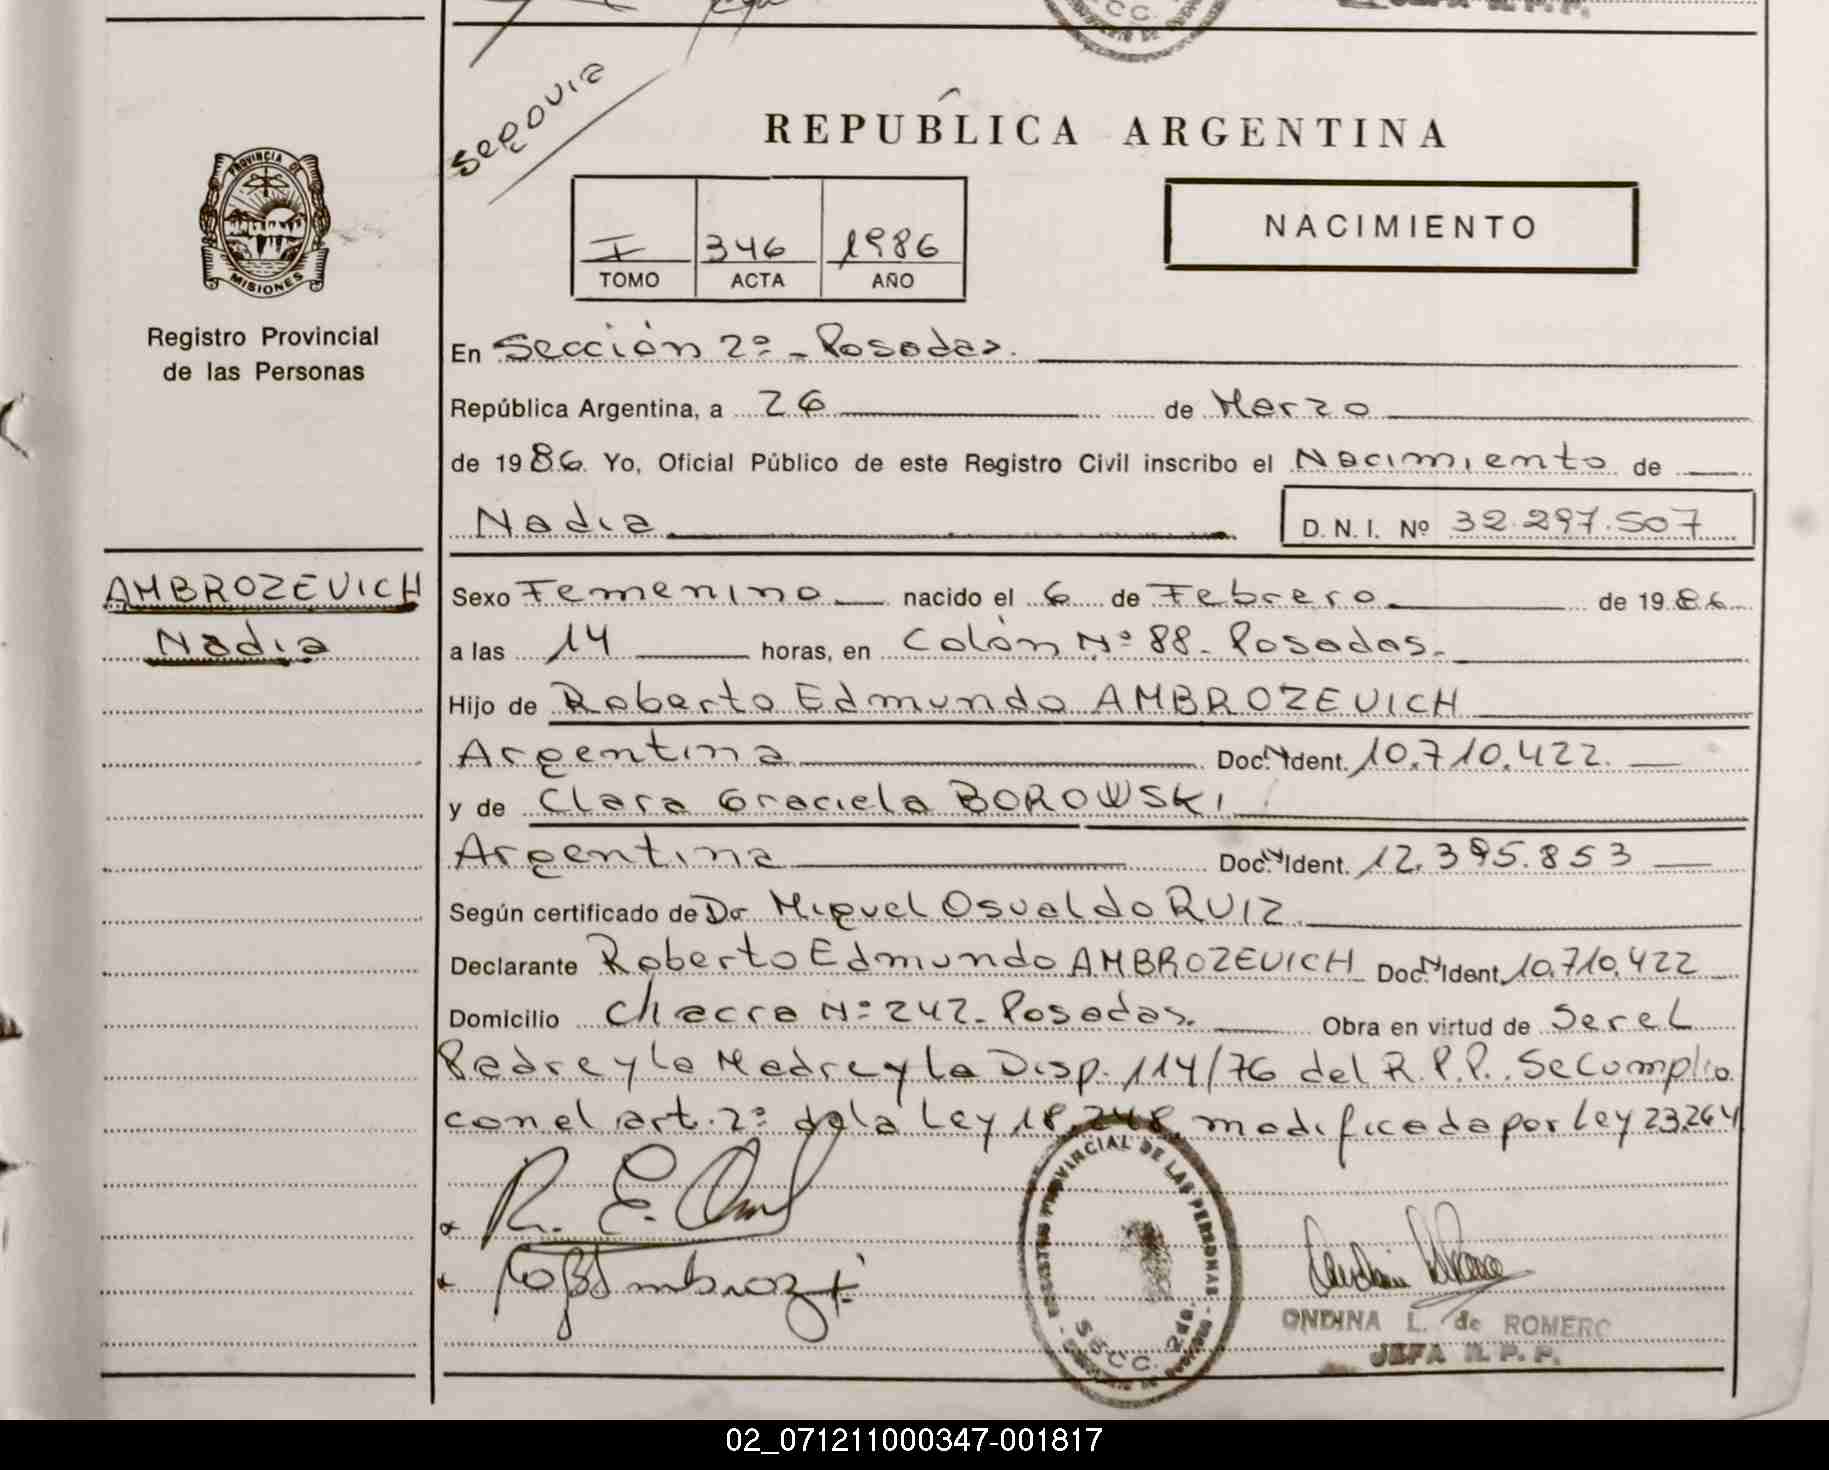 JEFA R. P. P.
Segovia
REPUBLICA ARGENTINA
PROVINCIA DE
MISIONES
NACIMIENTO
I 346 1986
TOMO ACTA AÑO
Registro Provincial
de las Personas
En Sección 2º - Posadas.
República Argentina, a 26 de Marzo
de 1986 Yo, Oficial Público de este Registro Civil inscribo el Nacimiento de
Nadia D. N. I. Nº 32.297.507
AMBROZEVICH
Nadia
Sexo Femenino nacido el 6 de Febrero de 1986
a las 14 horas, en Colón Nº 88 - Posadas.
Hijo de Roberto Edmundo AMBROZEVICH
Argentina Doc. N Ident. 10.710.422.
y de Clara Graciela BOROWSKI
Argentina Doc. N Ident. 12.395.853
Según certificado de Dr Miguel Osvaldo RUIZ
Declarante Roberto Edmundo AMBROZEVICH Doc. N Ident. 10.710.422
Domicilio Chacra Nº 242 - Posadas. Obra en virtud de Ser el
Padre y la Madre y la Disp. 114/76 del R.P.P. Se Cumplio
con el art. 2º de la Ley 18.248, modificada por Ley 23.264
REGISTRO PROVINCIAL DE LAS PERSONAS
SECC. 2da.
ONDINA L. de ROMERO
JEFA R. P. P.
02_071211000347-001817